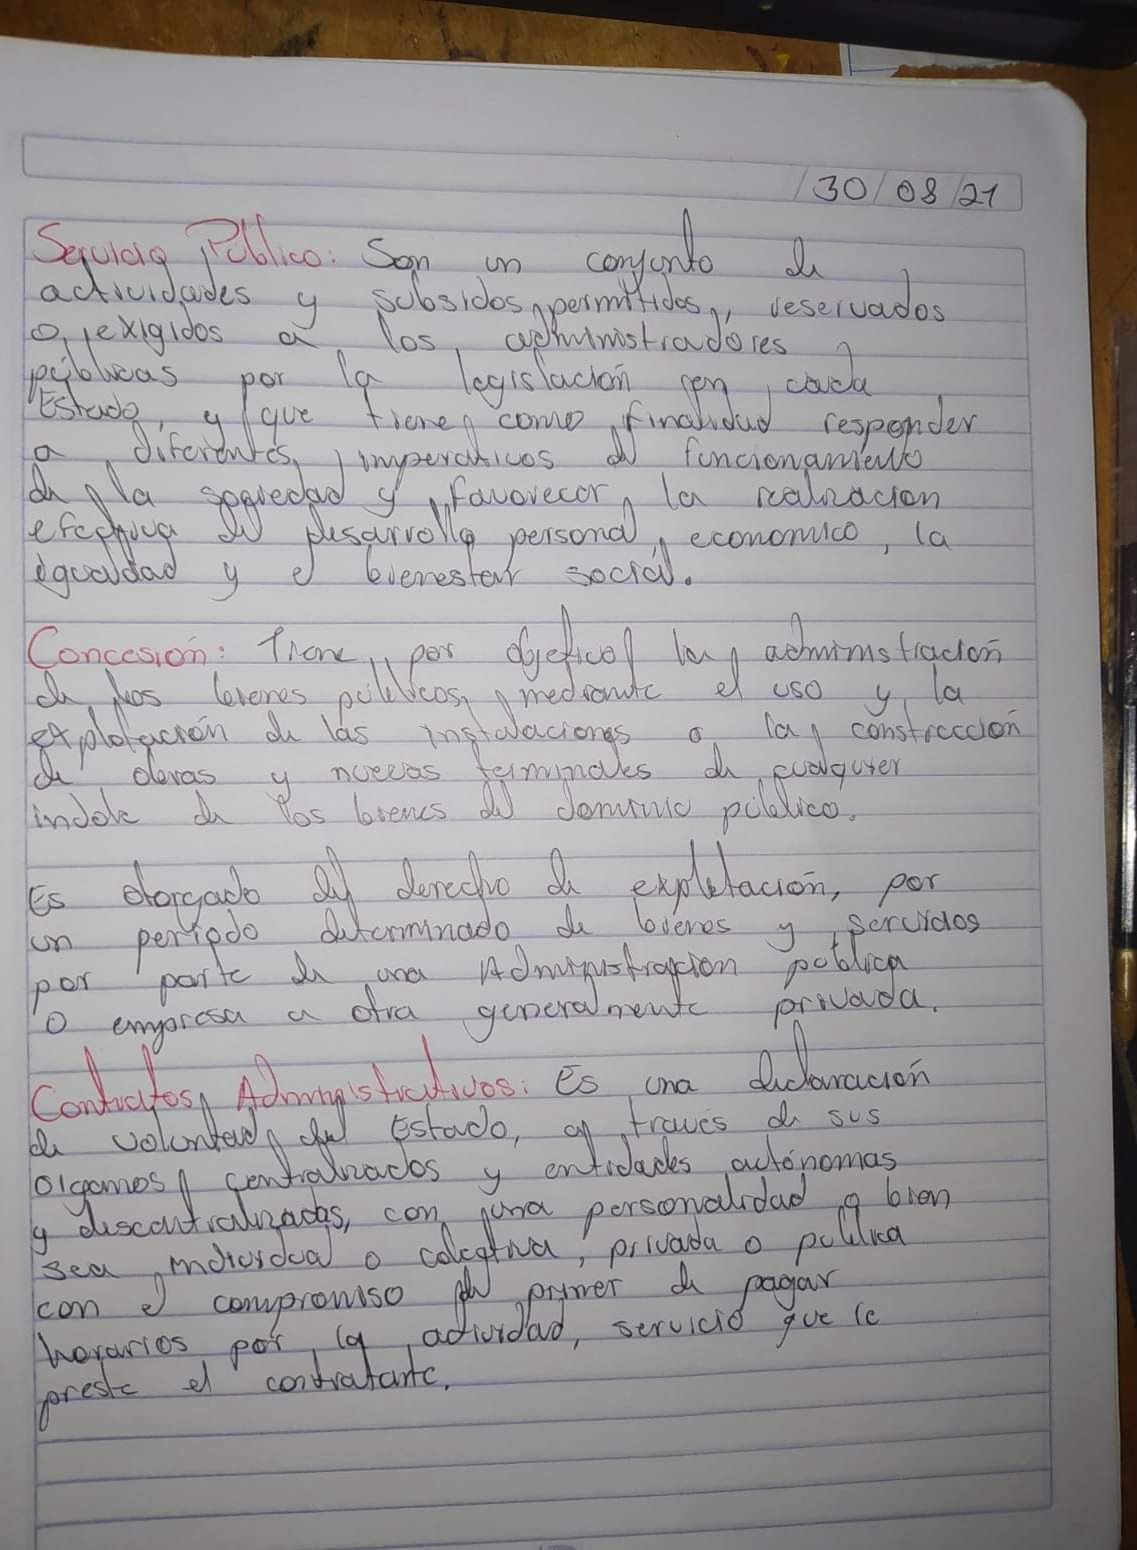 30/08/21
Servicio Público: Son un conjunto de
actividades y subsidos permitidos, reservados
o exigidos a los administradores
públicas por la legislación en cada
Estado, y que tiene como finalidad responder
a diferentes imperativos del funcionamiento
de la sociedad y favorecer la realización
efectiva del desarrollo personal, economico, la
igualdad y el bienestar social.
Concesión: Tiene por objetivo la administración
de los bienes públicos, mediante el uso y la
explotación de las instalaciones o la construcción
de obras y nuevas terminales de cualquier
indole de los bienes del dominio público.
Es otorgado del derecho de explotación, por
un período determinado de bienes y servicios
por parte de una Administración pública
o empresa a otra generalmente privada.
Contratos Administrativos: Es una declaración
de voluntad del Estado, a través de sus
organos centralizados y entidades autónomas
y descentralizadas, con una personalidad o bien
sea individual o colectiva, privada o publica
con el compromiso del primer de pagar
horarios por la actividad, servicio que le
preste el contratante.